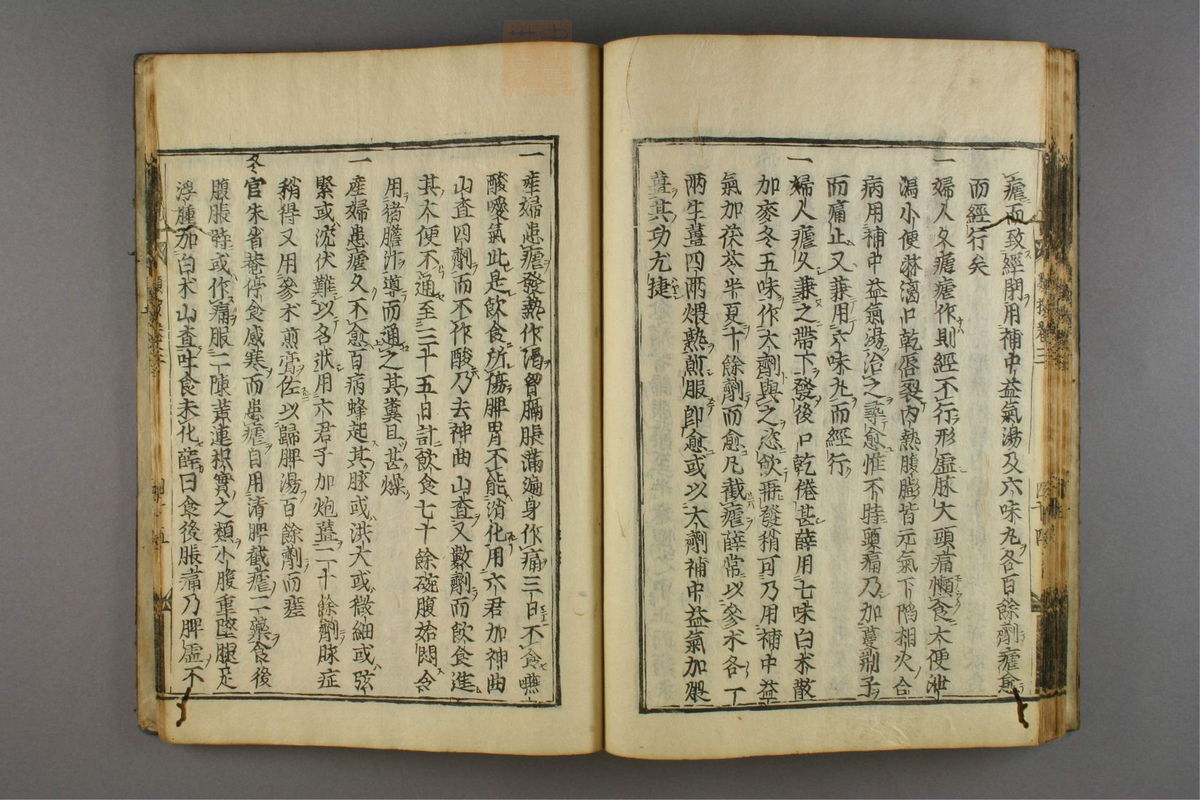 瘧而致經閉用補中益氣湯及六味丸各百餘劑瘧愈
而經行矣
一婦人久瘧瘧作則經不行形虛脉大頭痛懶食大便泄
瀉小便淋滴口乾唇裂内熱腹膨皆元氣下陷相火合
病用補中益氣湯治之尋愈惟不時頭痛乃加蔓荆子
而痛止又兼用六味丸而經行
一婦人瘧久兼之帶下發後口乾倦甚薛用七味白术散
加麥冬五味作大劑與之恣飲再發稍可乃用補中益
氣加茯苓半夏十餘劑而愈凡截瘧薛常以參术各一
兩生薑四兩煨熟煎服即愈或以大劑補中益氣加煨
薑其功尤捷
一産婦患瘧發熱作渴胷膈脹滿遍身作痛三日不食嚥
酸噯氣此是飲食所傷脾胃不能消化用六君加神曲
山査四劑而不作酸乃去神曲山査又數劑而飲食進
其大便不通至三十五日計飲食七十餘碗腹始悶令
用猪膽汁導而通之其糞且甚燥
一産婦患瘧久不愈百病蜂起其脉或洪大或微細或弦
緊或沈伏難以名狀用六君子加炮薑二十餘劑脉症
稍得又用參术煎膏佐以歸脾湯百餘劑而瘥
冬官朱省菴停食感寒而患瘧自用清脾截瘧二藥食後
腹脹時或作痛服二陳黄連枳實之類小腹重墜腿足
浮腫加白术山査吐食未化薛曰食後脹痛乃脾虛不